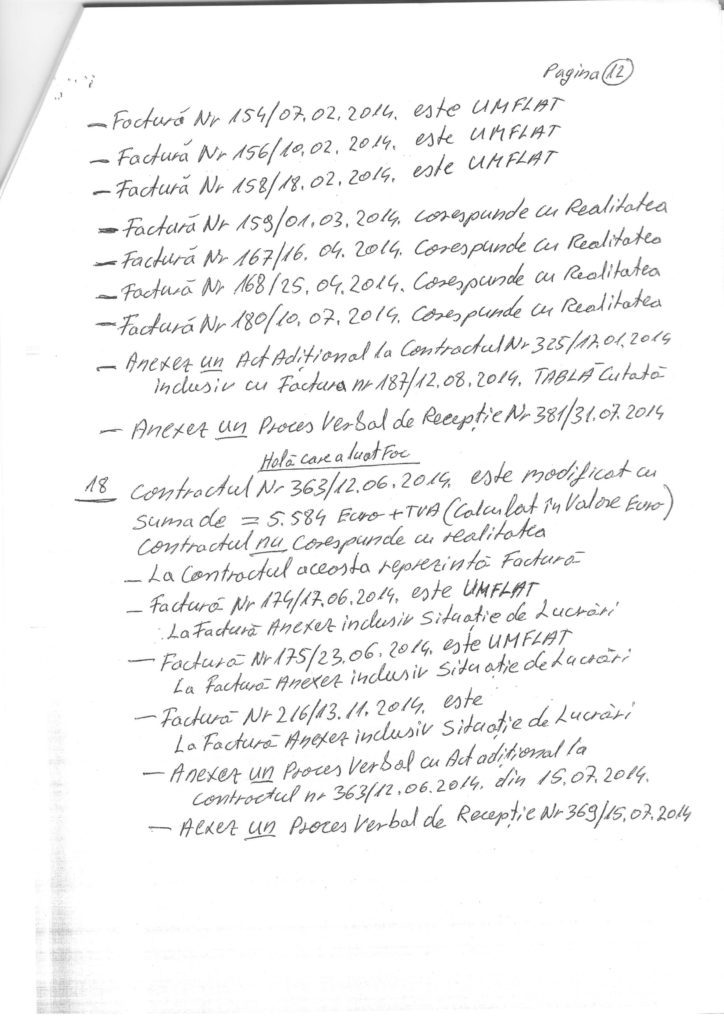 Pagina 12
– Factură Nr 154/07.02.2014. este UMFLAT
– Factură Nr 156/10.02.2014. este UMFLAT
– Factură Nr 158/18.02.2014. este UMFLAT
– Factură Nr 159/01.03.2014. corespunde cu Realitatea
– Factură Nr 167/16.04.2014. Corespunde cu Realitatea
– Factură Nr 168/25.04.2014. Corespunde cu Realitatea
– Factură Nr 180/10.07.2014. Corespunde cu Realitatea
– Anexez un Act Adițional la Contractul Nr 325/17.01.2014
inclusiv cu Factura nr 187/12.08.2014. TABLĂ Cutată
– Anexez un Proces Verbal de Recepție Nr 381/31.07.2014
Holă care a luat Foc
18 Contractul Nr 363/12.06.2014. este modificat cu
suma de = 5.584 Euro + TVA (Calculat în Valore Euro)
Contractul nu Corespunde cu realitatea
– La Contractul aceosta reprezintă Factură
– Factură Nr 174/17.06.2014. este UMFLAT
La Factură Anexez inclusiv Situație de Lucrări
– Factură Nr 175/23.06.2014. este UMFLAT
La Factură Anexez inclusiv Situație de Lucrări
– Factură Nr 216/13.11.2014. este
La Factură Anexez inclusiv Situație de Lucrări
– Anexez un Proces Verbal cu Act adițional la
Contractul nr 363/12.06.2014. din 15.07.2014.
– Aexez un Proces Verbal de Recepție Nr 369/15.07.2014